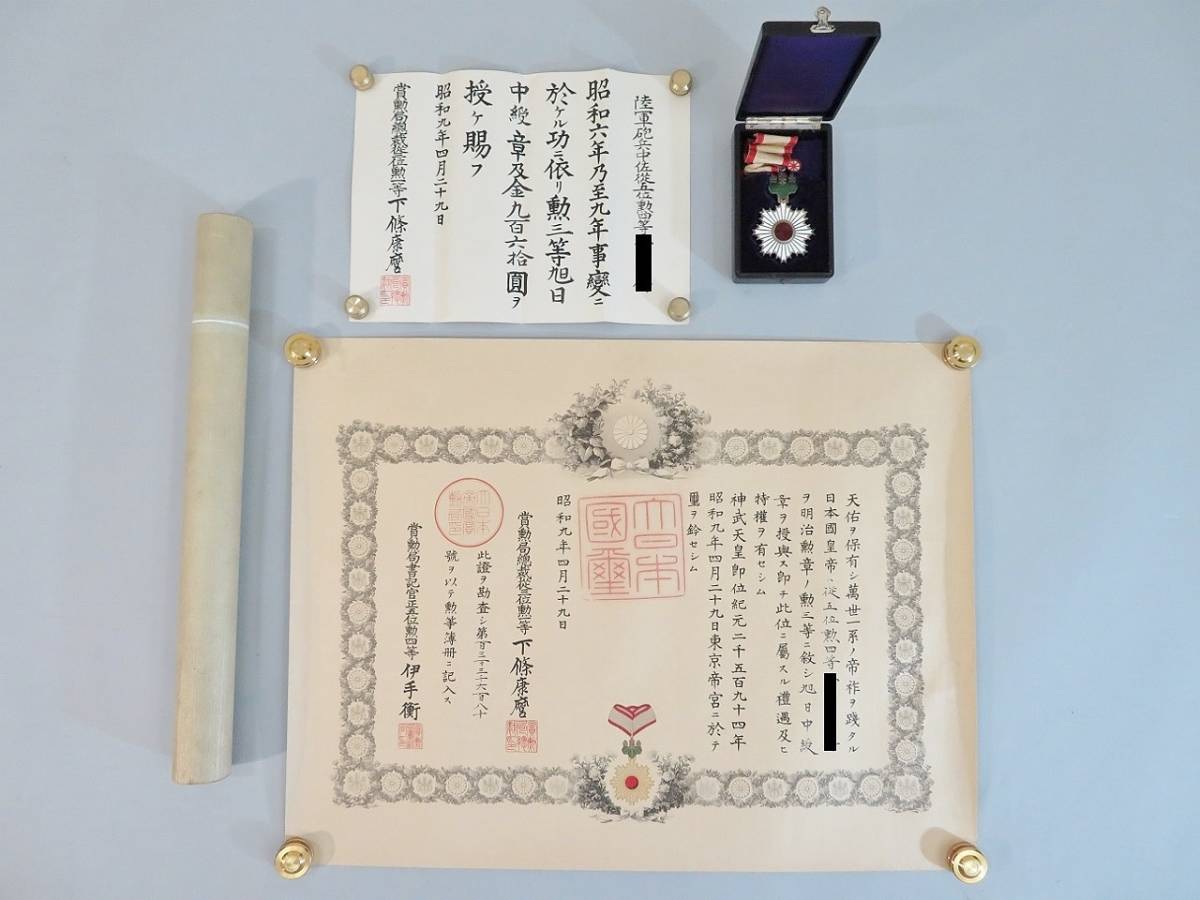 陸軍砲兵中佐從五位勲四等
昭和六年乃至九年事變ニ
於ケル功ニ依リ勲三等旭日
中綬章及金九百六拾圓ヲ
授ケ賜フ
昭和九年四月二十九日
賞勲局總裁從三位勲一等下條康麿
天佑ヲ保有シ萬世一系ノ帝祚ヲ踐タル
日本國皇帝ハ從五位勲四等
ヲ明治勲章ノ勲三等ニ敘シ旭日中綬
章ヲ授與ス即チ此位ニ屬スル禮遇及ヒ
特權ヲ有セシム
神武天皇即位紀元二千五百九十四年
昭和九年四月二十九日東京帝宮ニ於テ
璽ヲ鈐セシム
大日本
國璽
昭和九年四月二十九日
賞勲局總裁從三位勲一等下條康麿
此證ヲ勘査シ第百三十三万六百八十
號ヲ以テ勲等簿册ニ記入ス
賞勲局書記官正五位勲四等伊手衡